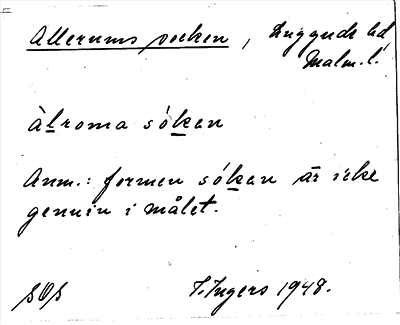 Allerums socken, Luggude hd
Malm. l.
àlroma sóken
Anm.: formen sóken är icke
genuin i målet.
SOS I. Ingers 1948.